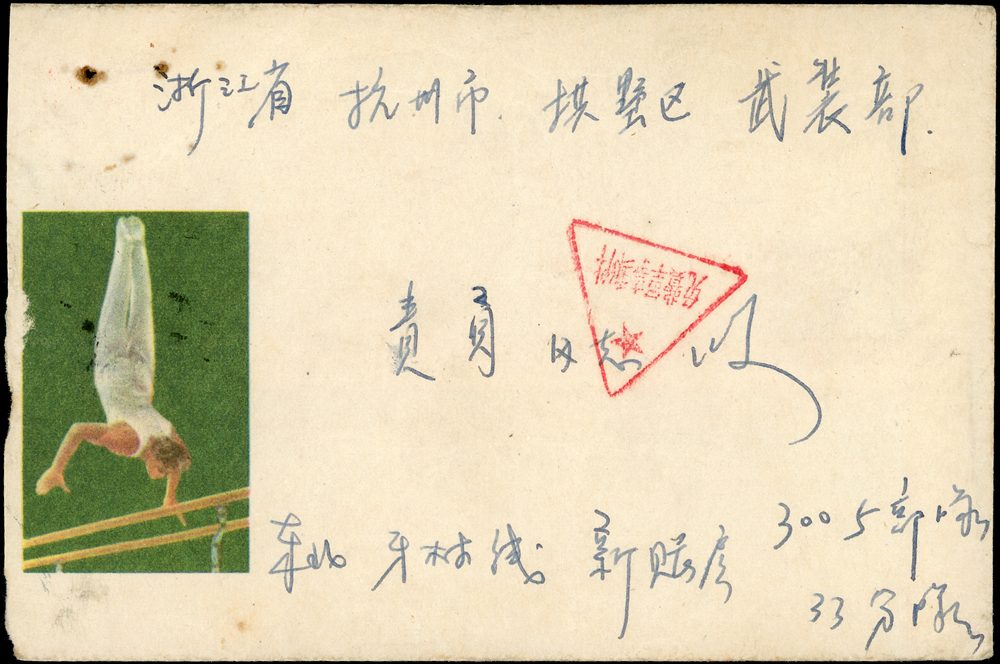 浙江省 杭州市 拱墅区 武装部.
责负同志 收
免费军事邮件
东北 牙林线 新账房 3005部队
33分队